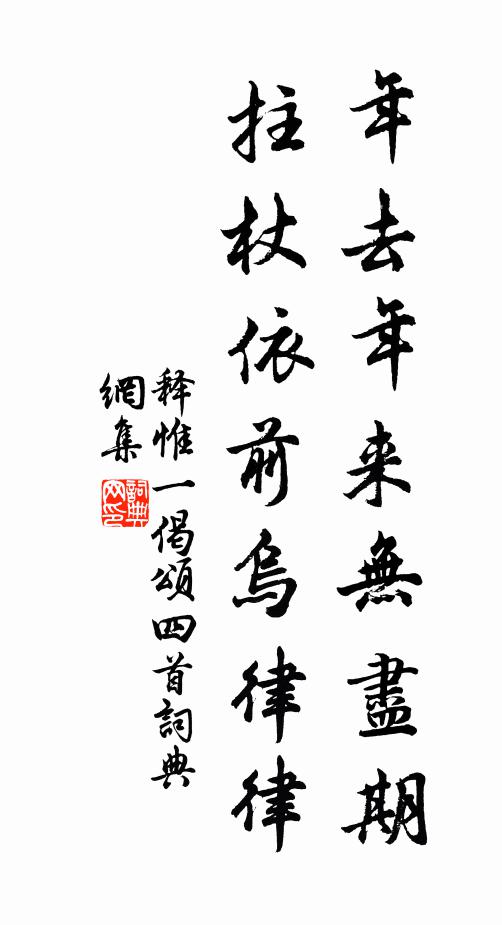 年去年来無盡期
拄杖依前烏律律
释惟一偈頌四首詞典
網集
詞典
网印